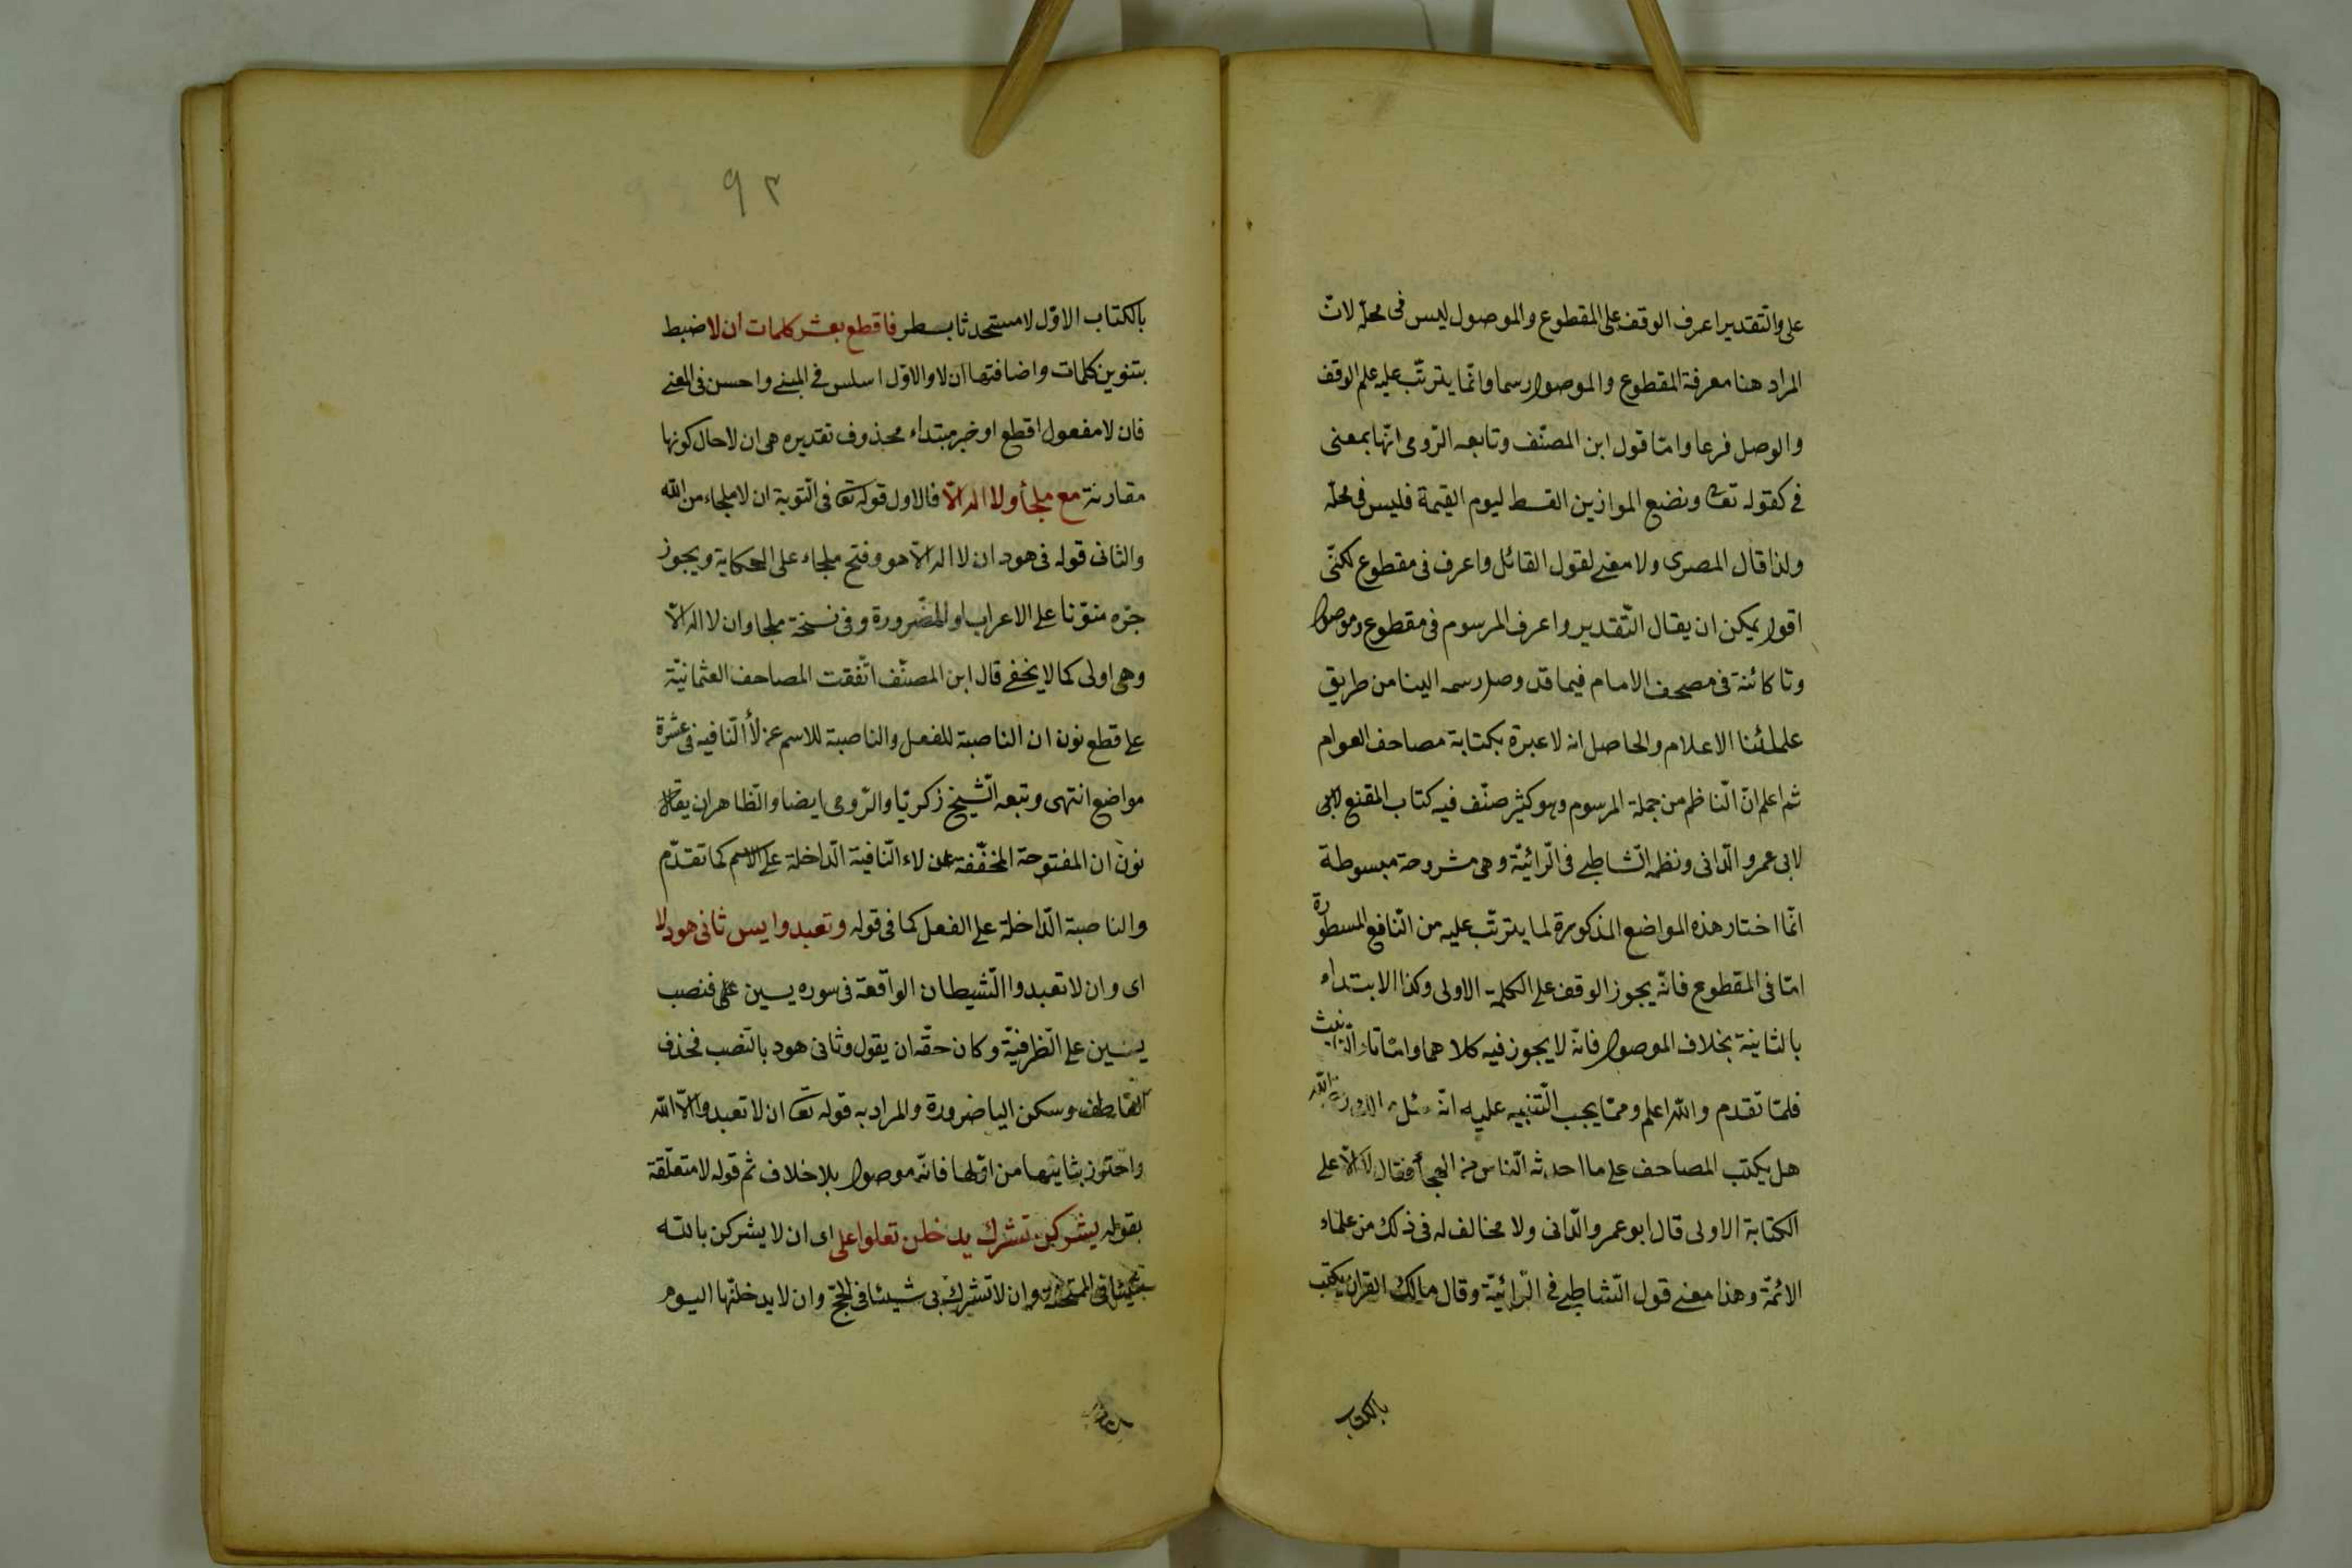 على والتقدير اعرف الوقف على المقطوع والموصول ليس فى محلّه لانّ
المراد هنا معرفة المقطوع والموصول رسما وانّما يترتّب عليه علم الوقف
والوصل فرعا وامّا قول ابن المصنّف وتابعه الرّومى انّها بمعنى
فى كقوله تعا ونضع الموازين القسط ليوم القيمة فليس فى محلّه
ولذا قال المصرى ولا معنى لقول القائل واعرف فى مقطوع لكنّى
اقول يمكن ان يقال التّقدير واعرف المرسوم فى مقطوع وموصول
وتا كائنة فى مصحف الامام فيما قد وصل رسمه الينا من طريق
علمائنا الاعلام والحاصل انه لا عبرة بكتابة مصاحف العوام
ثم اعلم انّ النّاظم من جملة المرسوم وهو كثير صنّف فيه كتاب المقنع لابى
لابى عمرو الدّانى ونظمه الشّاطبى فى الرّائيّة وهى مشروحة مبسوطة
انّما اختار هذه المواضع المذكورة لما يترتّب عليه من النّافع المسطورة
امّا فى المقطوع فانّه يجوز الوقف على الكلمة الاولى وكذا الابتداء
بالثانية بخلاف الموصول فانّه لا يجوز فيه كلاهما وامّا تاء التأنيث
فلمّا تقدم والله اعلم وممّا يجب التّنبيه عليه انّه سئل الله
هل يكتب المصاحف على ما احدثه النّاس من الهجأ فقال لا الّا على
الكتابة الاولى قال ابو عمرو الدّانى ولا مخالف له فى ذلك من علماء
الائمّة وهذا معنى قول الشّاطبى فى الرّائيّة وقال مالك القران يكتب
بالكتاب
٩٢
بالكتاب الاوّل لا مستحدثا بسطر فاقطع بعشر كلمات ان لا ضبط
بتنوين كلمات واضافتها ان لا والاوّل اسلس فى المبنى واحسن فى المعنى
فان لا مفعول اقطع او خبر مبتداء محذوف تقديره هى ان لا حال كونها
مقارنة مع ملجأ ولا اله الّا فالاول قوله تعا فى التّوبة ان لا ملجاء من الله
والثانى قوله فى هود ان لا اله الّا هو وفتح ملجاء على الحكاية ويجوز
جرّه منوّنا على الاعراب او للضّرورة وفى نسخة ملجا وان لا اله الّا
وهى اولى كما لا يخفى قال ابن المصنّف اتّفقت المصاحف العثمانيّة
على قطع نون ان الناصبة للفعل والناصبة للاسم عن لأ النّافية فى عشرة
مواضع انتهى وتبعه الشّيخ زكريّا والرّومى ايضا والظّاهر ان يقال
نون ان المفتوحة المخفّفة عن لاء النّافية الدّاخلة على الاسم كما تقدّم
والناصبة الدّاخلة على الفعل كما فى قوله وتعبدوا يس ثانى هود لا
اى وان لا تعبدوا الشّيطان الواقعة فى سوره يسين على فنصب
يسين على الظّرفيّة وكان حقّه ان يقول وثانى هود بالنّصب فحذف
العاطف وسكن اليا ضرورة والمراد به قوله تعا ان لا تعبدوا الّا الله
واحتوز بثانيها من اوّلها فانّه موصول بلا خلاف ثم قوله لا متعلّقة
بقوله يشركن تشرك يدخلن تعلوا على اى ان لا يشركن بالله
شيئا فى الممتحنة وان لا تشرك بى شيئا فى الحجّ وان لا يدخلنّها اليوم